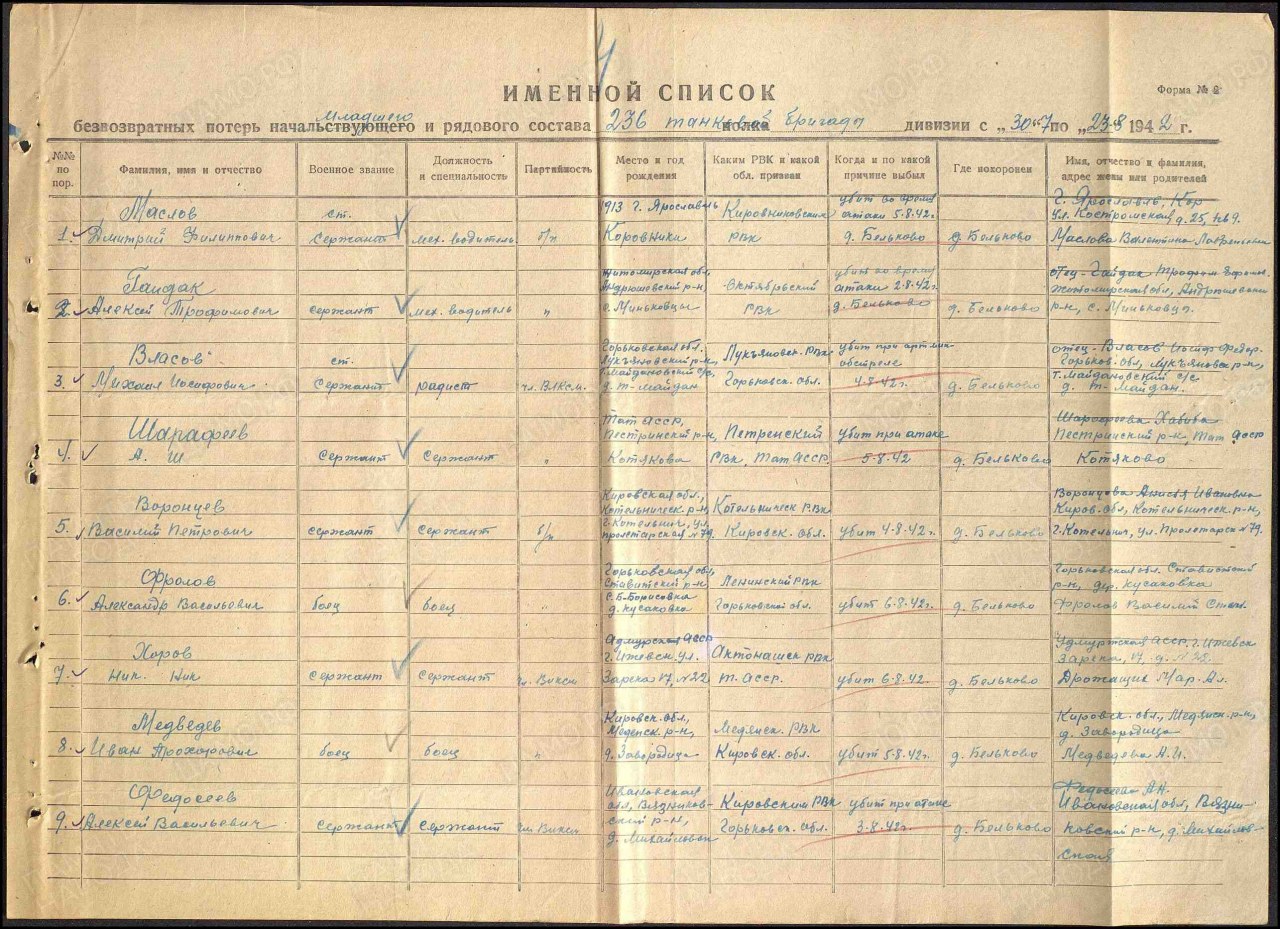 ИМЕННОЙ СПИСОК
Форма № 2
безвозвратных потерь младшего начальствующего и рядового состава 236 танковой полка бригады дивизии с „30“ 7 по „23“ 8 1942 г.
№№ по пор.
Фамилия, имя и отчество
Военное звание
Должность и специальность
Партийность
Место и год рождения
Каким РВК и какой обл. призван
Когда и по какой причине выбыл
Где похоронен
Имя, отчество и фамилия, адрес жены или родителей
Маслов ст. 1913 г. Ярославль убит во время г. Ярославль, Кор
Кировниковским атаки 5-8-42г. ул. Костромская д. 25, кв 9.
1. Дмитрий Филиппович сержант мех. водитель б/п Коровники РВК д. Бельково д. Бельково Маслова Валентина
Гайдак Житомирская обл. убит во время отец - Гайдак Трофим
Андрюшовский р-н, Октябрьский атаки 2-8-42г. Житомирская обл, Андрюшевский
2. Алексей Трофимович сержант мех. водитель " с. Миньковцы РВК д. Бельково д. Бельково р-н, с. Миньковцы.
Власов ст. Горьковская обл. Лукъяновск. РВК убит при арт. мин. отец - Власов Иосиф Федор.
Лукъяновский р-н, обстреле Горьков. обл, Лукъяновск р-н,
Т. Майдановский с/с
3. Михаил Иосифович сержант радист чл. ВЛКСМ. д. Т-Майдан Горьковск. обл. 4-8-42г. д. Бельково Т. Майдановский с/с д. Т-Майдан.
Шарафеев Тат АССР, Шарафеева Хабиба
Пестринский р-н, Петренский убит при атаке Пестринский р-н, Тат АССР
4. А. Ш сержант Сержант " Котякова РВК, Тат АССР. 5-8-42 д. Бельково Котяково
Воронцев Кировская обл., Воронцова Анисья Ивановна
Котельническ. р-н Котельническ РВК Киров. обл, Котельническ. р-н,
г. Котельнич, ул.
5. Василий Петрович сержант сержант б/п пролетарская №79. Кировск. обл. убит 4-8-42г. д. Бельково г. Котельнич, ул. Пролетарск №79.
Фролов Горьковская обл, Горьковская обл. Ставистский
Ставитский р-н Ленинский РВК р-н, дер. Кусаковка
с. Б-Борисовка
6. Александр Васильевич боец боец " д. Кусаковка Горьковской обл. убит 6-8-42г. д. Бельково Фролов Василий Степ.
Хоров Адмурская АССР Удмуртская АССР. г. Ижевск
г. Ижевск. ул. Актонашск РВК Зарека, 17, д. №22.
7. Ник. Ник сержант Сержант чл. ВЛКСМ Зарека 17, №22 Т. АССР. убит 6-8-42г. д. Бельково Дрожащих Мар. Ал.
Медведев Кировск. обл, Кировск. обл., Медянск. р-н,
Меденск. р-н, Медянск. РВК д. Завородица
8. Иван Прохорович боец боец " д. Завородица Кировск. обл. убит 5-8-42г. д. Бельково Медведева А.И.
Федосеев Ивановская Федосеева А.Н.
обл, Вязников- Кировским РВК убит при атаке Ивановская обл, Вязни-
ский р-н,
9. Алексей Васильевич Сержант Сержант чл. ВЛКСМ д. Михайловск Горьковск. обл. 3-8-42г. д. Бельково ковский р-н, д. Михайлов-
ская